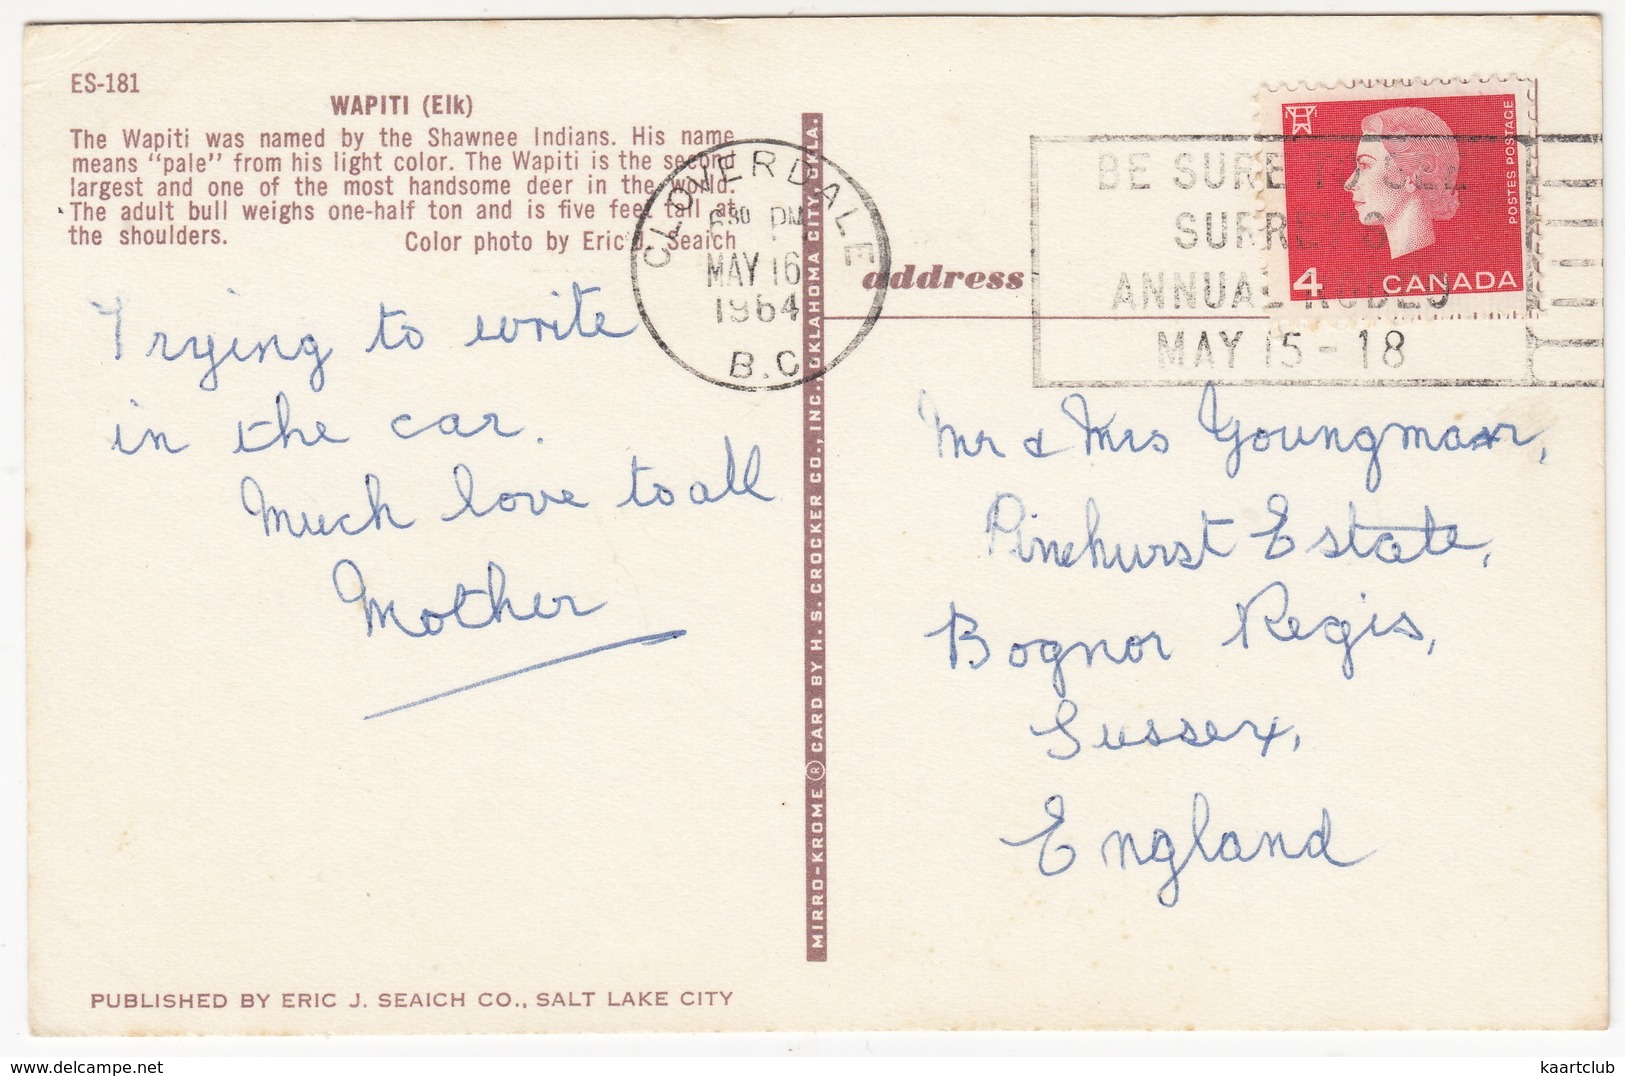 ES-181
WAPITI (Elk)
The Wapiti was named by the Shawnee Indians. His name
means "pale" from his light color. The Wapiti is the second
largest and one of the most handsome deer in the world.
The adult bull weighs one-half ton and is five feet tall at
the shoulders.
Color photo by Eric J. Seaich
Trying to write
in the car.
Much love to all
Mother
PUBLISHED BY ERIC J. SEAICH CO., SALT LAKE CITY
MIRRO-KROME ® CARD BY H. S. CROCKER CO., INC., OKLAHOMA CITY, OKLA.
CLOVERDALE
6 30 PM
MAY 16
1964
B.C.
address
BE SURE TO SEE
SURREY'S
ANNUAL RODEO
MAY 15 - 18
POSTES POSTAGE
4 CANADA
Mr & Mrs Youngman,
Pinehurst Estate,
Bognor Regis,
Sussex,
England
kaartclub
https://www.delcampe.net